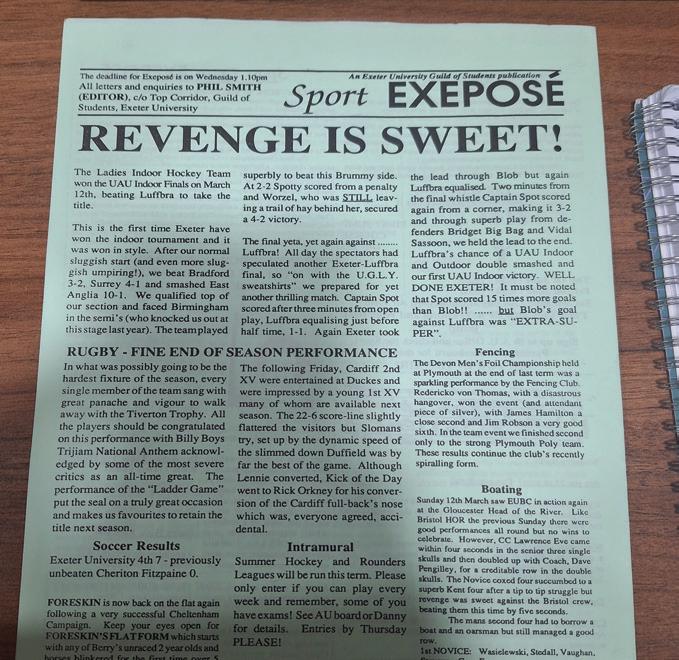 The deadline for Exeposé is on Wednesday 1.10pm
All letters and enquiries to PHIL SMITH
(EDITOR), c/o Top Corridor, Guild of
Students, Exeter University
An Exeter University Guild of Students publication
Sport EXEPOSÉ
REVENGE IS SWEET!
The Ladies Indoor Hockey Team
won the UAU Indoor Finals on March
12th, beating Luffbra to take the
title.
This is the first time Exeter have
won the indoor tournament and it
was won in style. After our normal
sluggish start (and even more slug-
gish umpiring!), we beat Bradford
3-2, Surrey 4-1 and smashed East
Anglia 10-1. We qualified top of
our section and faced Birmingham
in the semi's (who knocked us out at
this stage last year). The team played
superbly to beat this Brummy side.
At 2-2 Spotty scored from a penalty
and Worzel, who was STILL leav-
ing a trail of hay behind her, secured
a 4-2 victory.
The final yeta, yet again against ........
Luffbra! All day the spectators had
speculated another Exeter-Luffbra
final, so "on with the U.G.L.Y.
sweatshirts" we prepared for yet
another thrilling match. Captain Spot
scored after three minutes from open
play, Luffbra equalising just before
half time, 1-1. Again Exeter took
the lead through Blob but again
Luffbra equalised. Two minutes from
the final whistle Captain Spot scored
again from a corner, making it 3-2
and through superb play from de-
fenders Bridget Big Bag and Vidal
Sassoon, we held the lead to the end.
Luffbra's chance of a UAU Indoor
and Outdoor double smashed and
our first UAU Indoor victory. WELL
DONE EXETER! It must be noted
that Spot scored 15 times more goals
than Blob!! ...... but Blob's goal
against Luffbra was "EXTRA-SU-
PER".
RUGBY - FINE END OF SEASON PERFORMANCE
In what was possibly going to be the
hardest fixture of the season, every
single member of the team sang with
great panache and vigour to walk
away with the Tiverton Trophy. All
the players should be congratulated
on this performance with Billy Boys
Trijiam National Anthem acknowl-
edged by some of the most severe
critics as an all-time great. The
performance of the "Ladder Game"
put the seal on a truly great occasion
and makes us favourites to retain the
title next season.
The following Friday, Cardiff 2nd
XV were entertained at Duckes and
were impressed by a young 1st XV
many of whom are available next
season. The 22-6 score-line slightly
flattered the visitors but Slomans
try, set up by the dynamic speed of
the slimmed down Duffield was by
far the best of the game. Although
Lennie converted, Kick of the Day
went to Rick Orkney for his conver-
sion of the Cardiff full-back's nose
which was, everyone agreed, acci-
dental.
Soccer Results
Exeter University 4th 7 - previously
unbeaten Cheriton Fitzpaine 0.
FORESKIN is now back on the flat again
following a very successful Cheltenham
Campaign. Keep your eyes open for
FORESKIN'S FLATFORM which starts
with any of Berry's unraced 2 year olds and
horses blinkered for the first time over 5
Intramural
Summer Hockey and Rounders
Leagues will be run this term. Please
only enter if you can play every
week and remember, some of you
have exams! See AU board or Danny
for details. Entries by Thursday
PLEASE!
Fencing
The Devon Men's Foil Championship held
at Plymouth at the end of last term was a
sparkling performance by the Fencing Club.
Redericko von Thomas, with a disastrous
hangover, won the event (and attendant
piece of silver), with James Hamilton a
close second and Jim Robson a very good
sixth. In the team event we finished second
only to the strong Plymouth Poly team.
These results continue the club's recently
spiralling form.
Boating
Sunday 12th March saw EUBC in action again
at the Gloucester Head of the River. Like
Bristol HOR the previous Sunday there were
good performances all round but no wins to
celebrate. However, CC Lawrence Eve came
within four seconds in the senior three single
skulls and then doubled up with Coach, Dave
Pengilley, for a creditable row in the double
skulls. The Novice coxed four succumbed to a
superb Kent four after a tip to tip struggle but
revenge was sweet against the Bristol crew,
beating them this time by five seconds.
The mans second four had to borrow a
boat and an oarsman but still managed a good
row.
1st NOVICE: Wasielewski, Stedall, Vaughan,